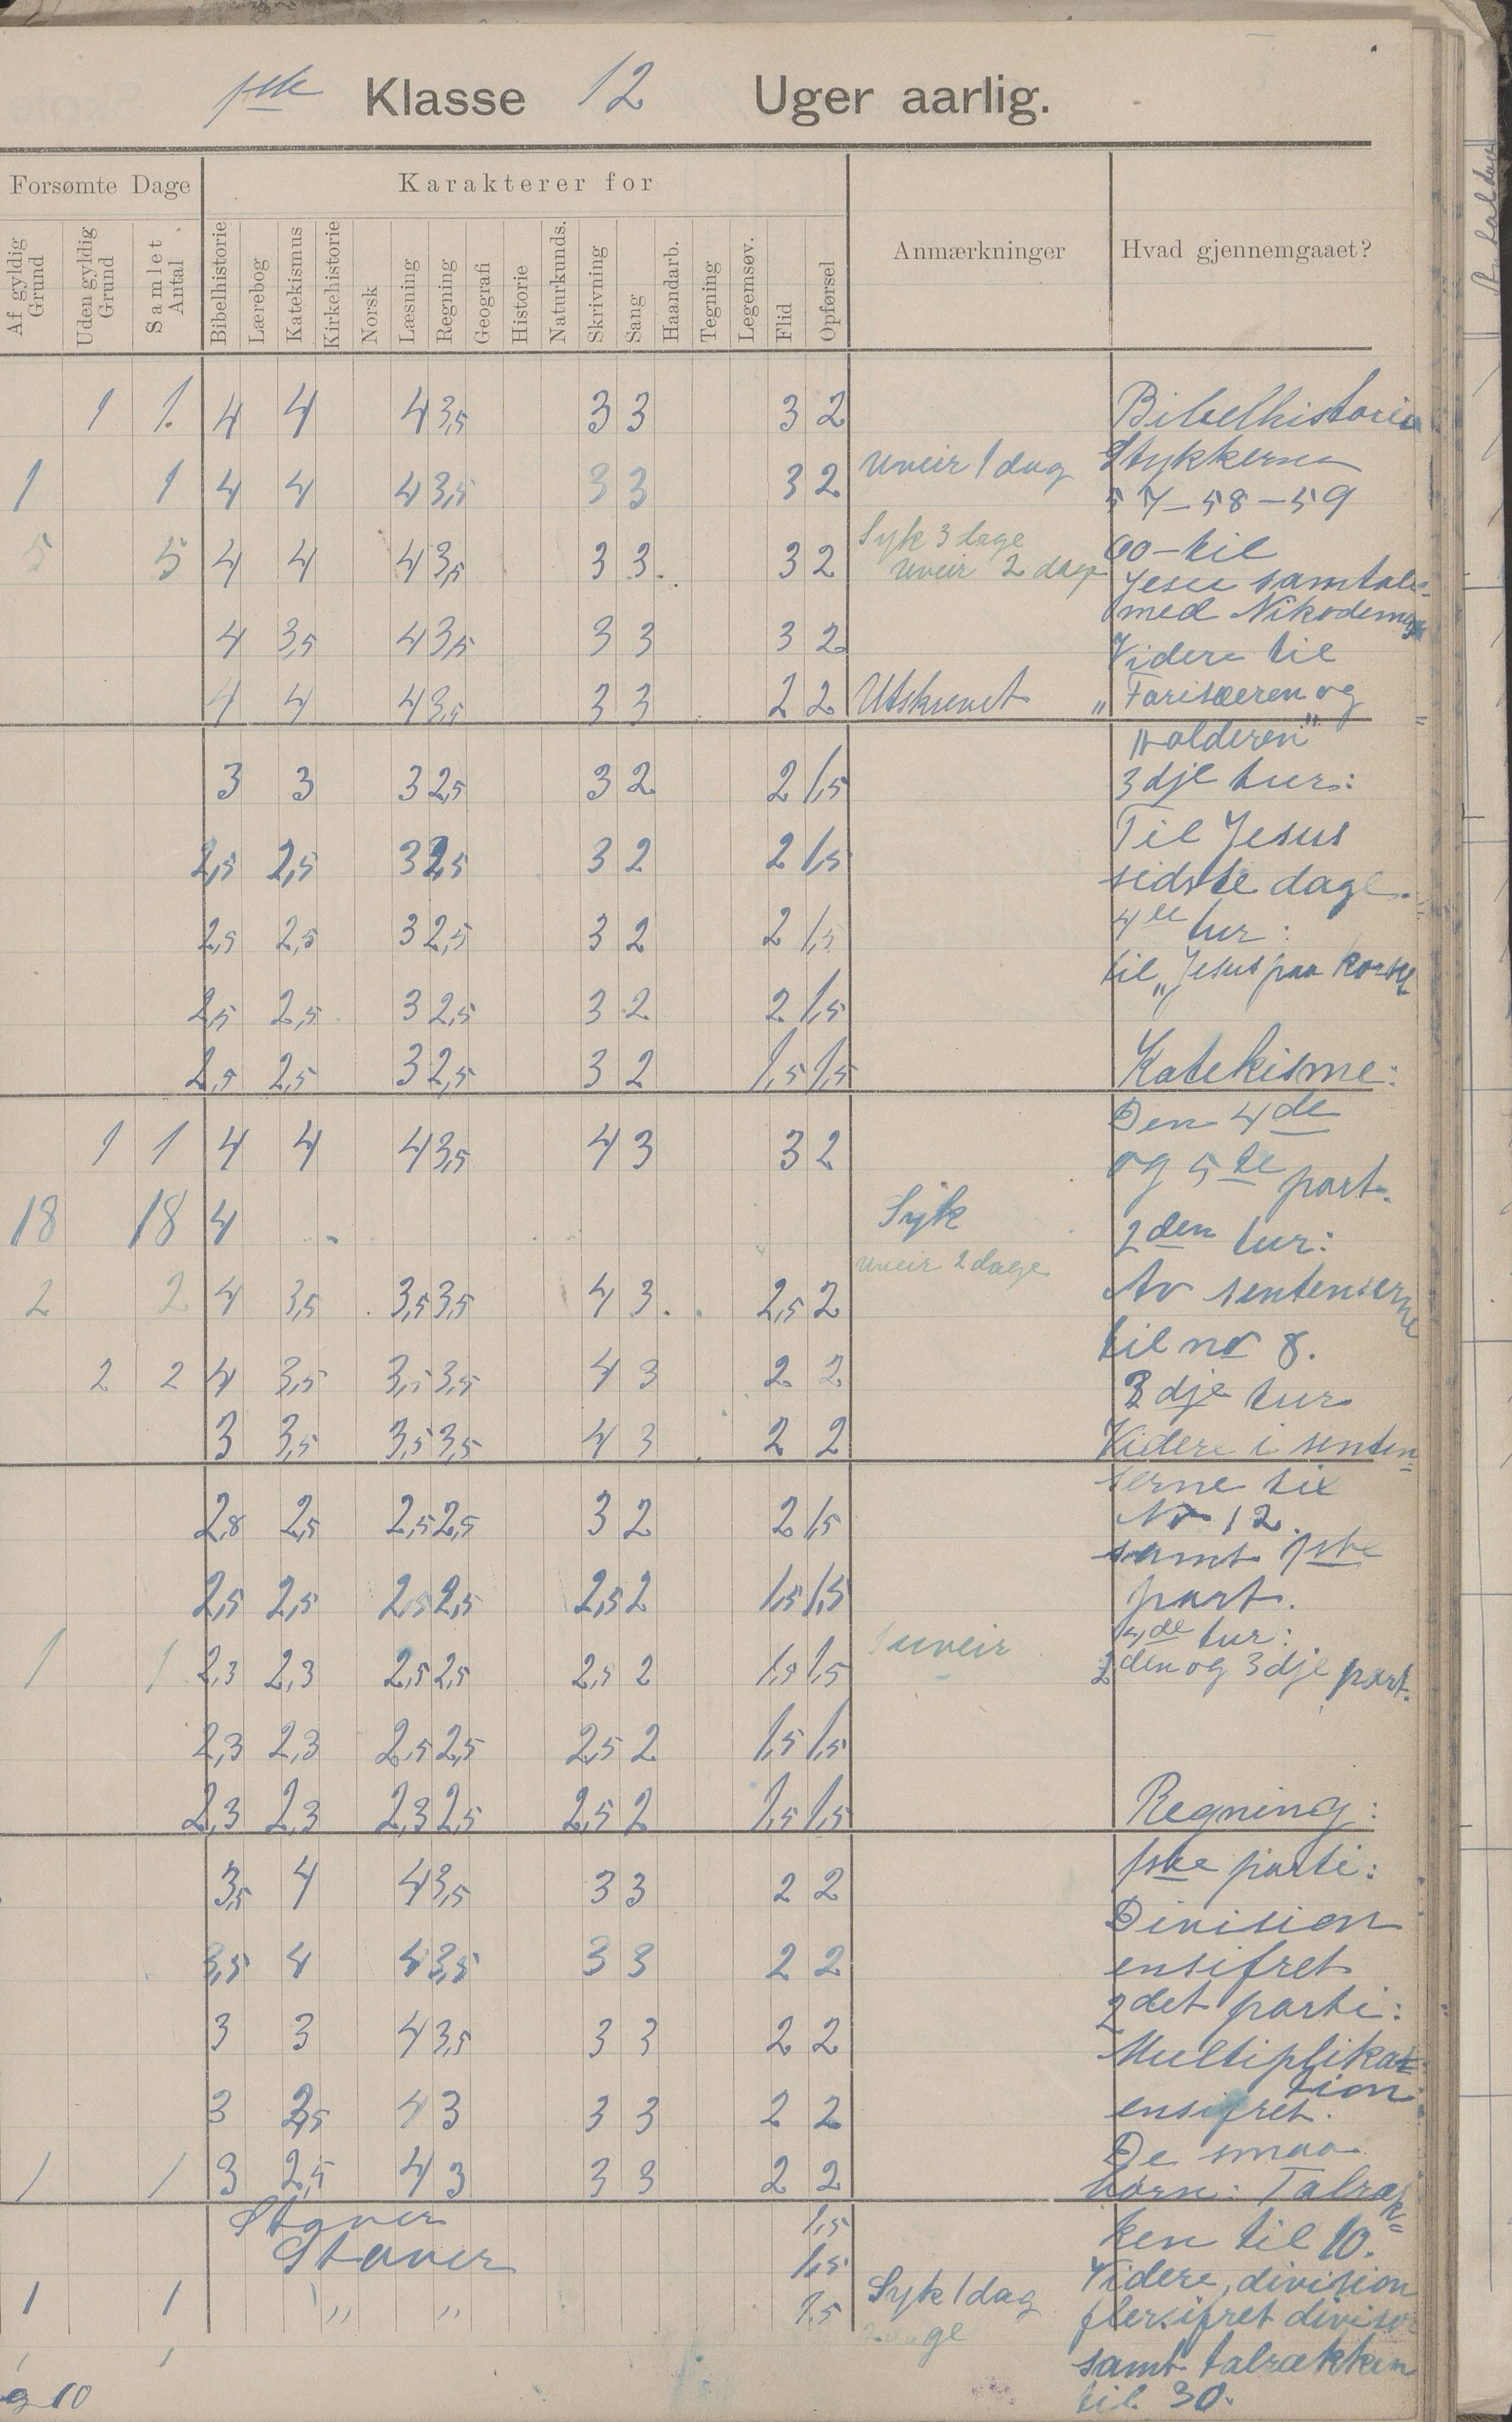 1ste Klasse 12 Uger aarlig.
Forsømte Dage
Karakterer for
Anmærkninger
Hvad gjennemgaaet?
Af gyldig Grund
Uden gyldig Grund
Samlet Antal
Bibelhistorie
Lærebog
Katekismus
Kirkehistorie
Norsk
Læsning
Regning
Geografi
Historie
Naturkunds.
Skrivning
Sang
Haandarb.
Tegning
Legemsøv.
Flid
Opførsel
1 1 4 4 4 3,5 3 3 3 2
1 1 4 4 4 3,5 3 3 3 2 Uveir 1 dag
5 5 4 4 4 3,5 3 3 3 2 Syk 3 dage
uveir 2 dage
4 3,5 4 3,5 3 3 3 2
4 4 4 3,5 3 3 2 2 Utskrevet
3 3 3 2,5 3 2 2 1,5
2,5 2,5 3 2,5 3 2 2 1,5
2,5 2,5 3 2,5 3 2 2 1,5
2,5 2,5 3 2,5 3 2 2 1,5
2,5 2,5 3 2,5 3 2 1,5 1,5
1 1 4 4 4 3,5 4 3 3 2
18 18 4 Syk
uveir 2 dage
2 2 4 3,5 3,5 3,5 4 3 2,5 2
2 2 4 3,5 3,5 3,5 4 3 2 2
3 3,5 3,5 3,5 4 3 2 2
2,8 2,5 2,5 2,5 3 2 2 1,5
2,5 2,5 2,5 2,5 2,5 2 1,5 1,5
1 1 2,3 2,3 2,5 2,5 2,5 2 1,5 1,5 1 uveir
2,3 2,3 2,5 2,5 2,5 2 1,5 1,5
2,3 2,3 2,3 2,5 2,5 2 1,5 1,5
3,5 4 4 3,5 3 3 2 2
3,5 4 4 3,5 3 3 2 2
3 3 4 3,5 3 3 2 2
3 2,5 4 3 3 3 2 2
1 1 3 2,5 4 3 3 3 2 2
Staver 1,5
Staver 1,5
1 1 " " 1,5 Syk 1 dag
1 1
10
Bibelhistorie
Stykkerne
57-58-59
60-til
Jesu samtale
med Nikodemus
Videre til
„Farisæeren og
tolderen"
3dje tur:
Til Jesus
sidste dage.
4de tur:
til „Jesus paa korset
Katekisme:
Den 4de
og 5te part.
2den tur:
Av sentenserne
til no 8.
3dje tur
Videre i senten=
serne til
No 12.
samt 1ste
part.
4de tur:
2den og 3dje part.
Regning:
1ste parti:
Division
ensifret
2det parti:
Multiplika=
tion
ensifret.
De smaa
børn: Talræk=
ken til 10.
Videre, division
flersifret divisor
samt talrækken
til 30.